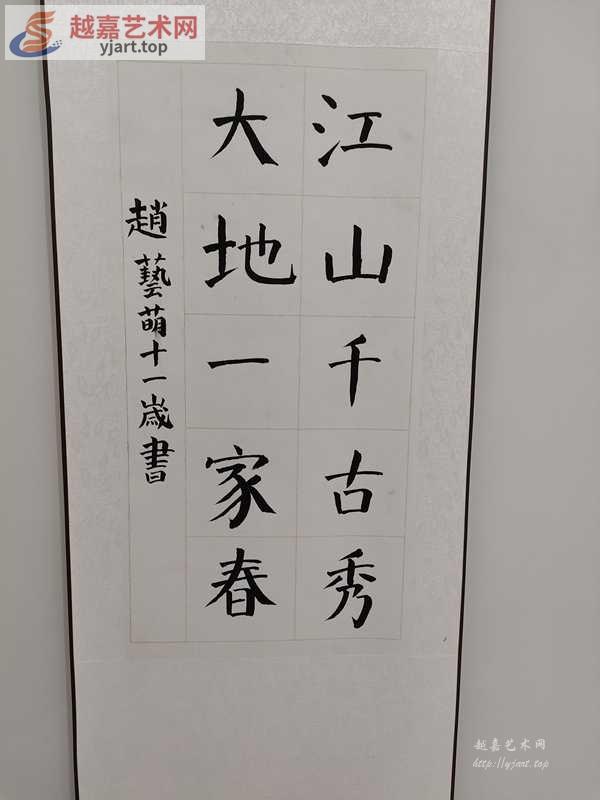 越嘉艺术网
yjart.top
江山千古秀
大地一家春
趙藝萌十一歲書
越嘉艺术网
http://yjart.top